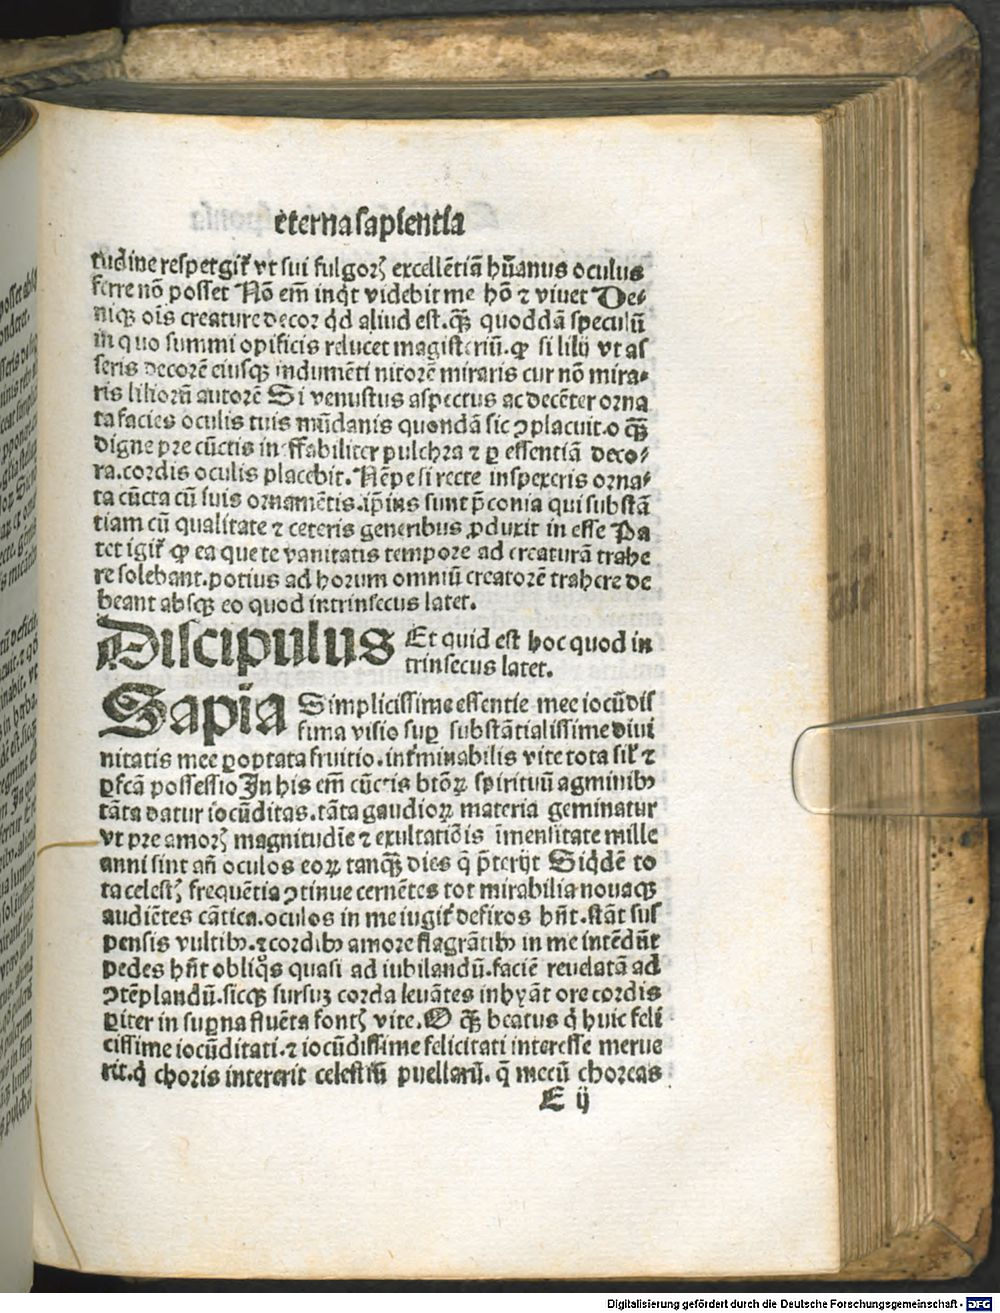 eterna sapientia
tudine respergit᷑ vt sui fulgorꝭ excellētiā hūanus oculus
ferre nō posset Nō em̄ inqͥt videbit me hō ⁊ viuet De⸗
niqꝫ oīs creature decor qͥd aliud est.qͣꝫ quoddā speculū
in quo summi opificis relucet magisteriū.ꝙ si lilij vt as
seris decorē eiusqꝫ indumēti nitorē miraris cur nō mira⸗
ris liliorū autorē Si venustus aspectus ac decēter orna
ta facies oculis tuis mūdanis quondā sic ꝯplacuit.o qͣꝫ
digne pre cūctis ineffabiliter pulchra ⁊ ꝑ essentiā deco⸗
ra.cordis oculis placebit.Nēpe si recte inspexeris orna⸗
ta cūcta cū suis ornamētis.ip̄ius sunt p̄conia qui substā
tiam cū qualitate ⁊ ceteris generibus ꝓduxit in esse Pa
tet igit᷑ ꝙ ea que te vanitatis tempore ad creaturā trahe
re solebant.potius ad horum omniū creatorē trahere de
beant absqꝫ eo quod intrinsecus latet.
Discipulus Et quid est hoc quod in
trinsecus latet.
Sapia Simplicissime essentie mee iocūdis
sima visio suꝑ substātialissime diui
nitatis mee ꝑoptata fruitio.int᷑minabilis vite tota sil᷑ ⁊
ꝑfcā possessio In his em̄ cūctis btōꝝ spirituū agminibꝰ
tāta datur iocūditas.tāta gaudioꝝ materia geminatur
vt pre amorꝭ magnitudīe ⁊ exultatiōis īmensitate mille
anni sint an̄ oculos eoꝝ tanqͣꝫ dies q̄ p̄terijt Siqͥdē to
ta celestꝭ frequētia ꝯtinue cernētes tot mirabilia nouaqꝫ
audiētes cātica.oculos in me iugit᷑ defixos hn̄t.stāt sus
pensis vultibꝰ.⁊ cordibꝰ amore flagrātibꝰ in me intēdūt
pedes hn̄t obliqͦs quasi ad iubilandū.faciē reuelatā ad
ꝯtēplandū.sicqꝫ sursuꝫ corda leuātes inhyāt ore cordis
ꝑiter in suꝑna fluēta fontꝭ vite.O qͣꝫ beatus qͥ huic feli
cissime iocūditati.⁊ iocūdissime felicitati interesse merue
rit.qͥ choris intererit celestiū puellarū.q̄ mecū choreas
E ij
Digitalisierung gefördert durch die Deutsche Forschungsgemeinschaft - DFG